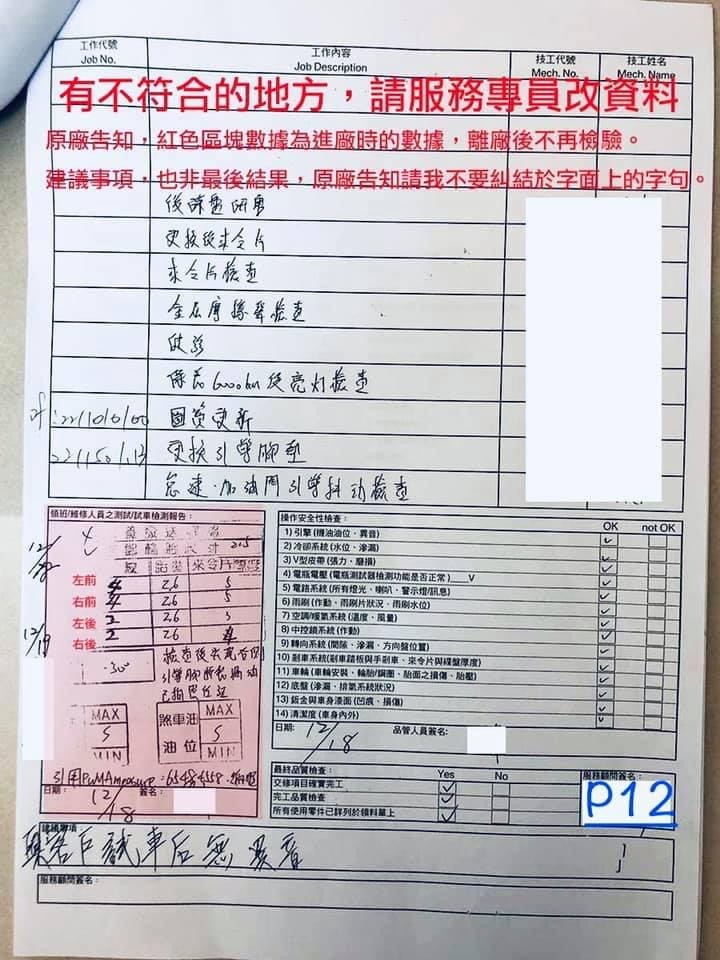 工作代號
Job No.
工作內容
Job Description
技工代號
Mech. No.
技工姓名
Mech. Name
有不符合的地方，請服務專員改資料
原廠告知，紅色區塊數據為進廠時的數據，離廠後不再檢驗。
建議事項，也非最後結果，原廠告知請我不要糾結於字面上的字句。
後碟盤研磨
更換後來令片
來令片檢查
全左房檢查
係長檢查
固資更新
更換引擎腳墊
怠速、加油門引擎抖動檢查
領班/維修人員之測試/試車檢測報告：
12/18
來令片
左前 4 26 5
右前 4 26 5
左後 2 26 3
右後 2 26 4
12/19
-30°
MAX
5
MIN
煞車油
油位
MAX
5
MIN
引用PuMA
日期： 12/18 簽名：
操作安全性檢查： OK not OK
1) 引擎 (機油油位、異音)
2) 冷卻系統 (水位、滲漏)
3) V型皮帶 (張力、磨損)
4) 電瓶電壓 (電瓶測試器檢測功能是否正常)____V
5) 電路系統 (所有燈光、喇叭、警示燈/訊息)
6) 雨刷 (作動、雨刷片狀況、雨刷水位)
7) 空調/暖氣系統 (溫度、風量)
8) 中控鎖系統 (作動)
9) 轉向系統 (間隙、滲漏、方向盤位置)
10) 剎車系統 (剎車踏板與手剎車、來令片與碟盤厚度)
11) 車輪 (車輪安裝、輪胎/鋼圈、胎面之損傷、胎壓)
12) 底盤 (滲漏、排氣系統狀況)
13) 鈑金與車身漆面 (凹痕、損傷)
14) 清潔度 (車身內外)
日期： 12/18 品管人員簽名：
最終品質檢查： Yes No
交修項目確實完工
完工品質檢查
所有使用零件已詳列於領料單上
服務顧問簽名：
P12
建議事項
與客戶試車后無異音
服務顧問簽名：